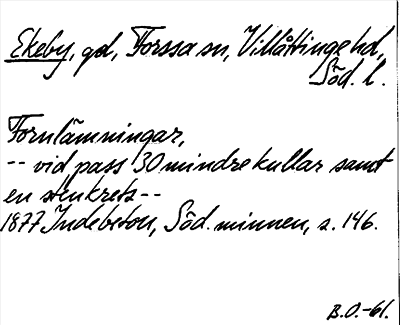 Ekeby, gd, Forssa sn, Villåttinge hd,
Söd. l.
Fornlämningar,
-- vid pass 30 mindre kullar samt
en stenkrets --
1877 Indebetou, Söd. minnen, s. 146.
B.O.-61.